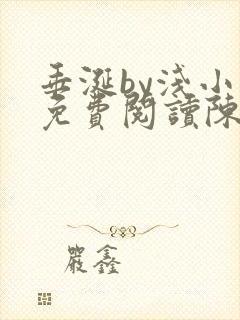 垂涎by浅小
免費閱讀陳
嚴鑫